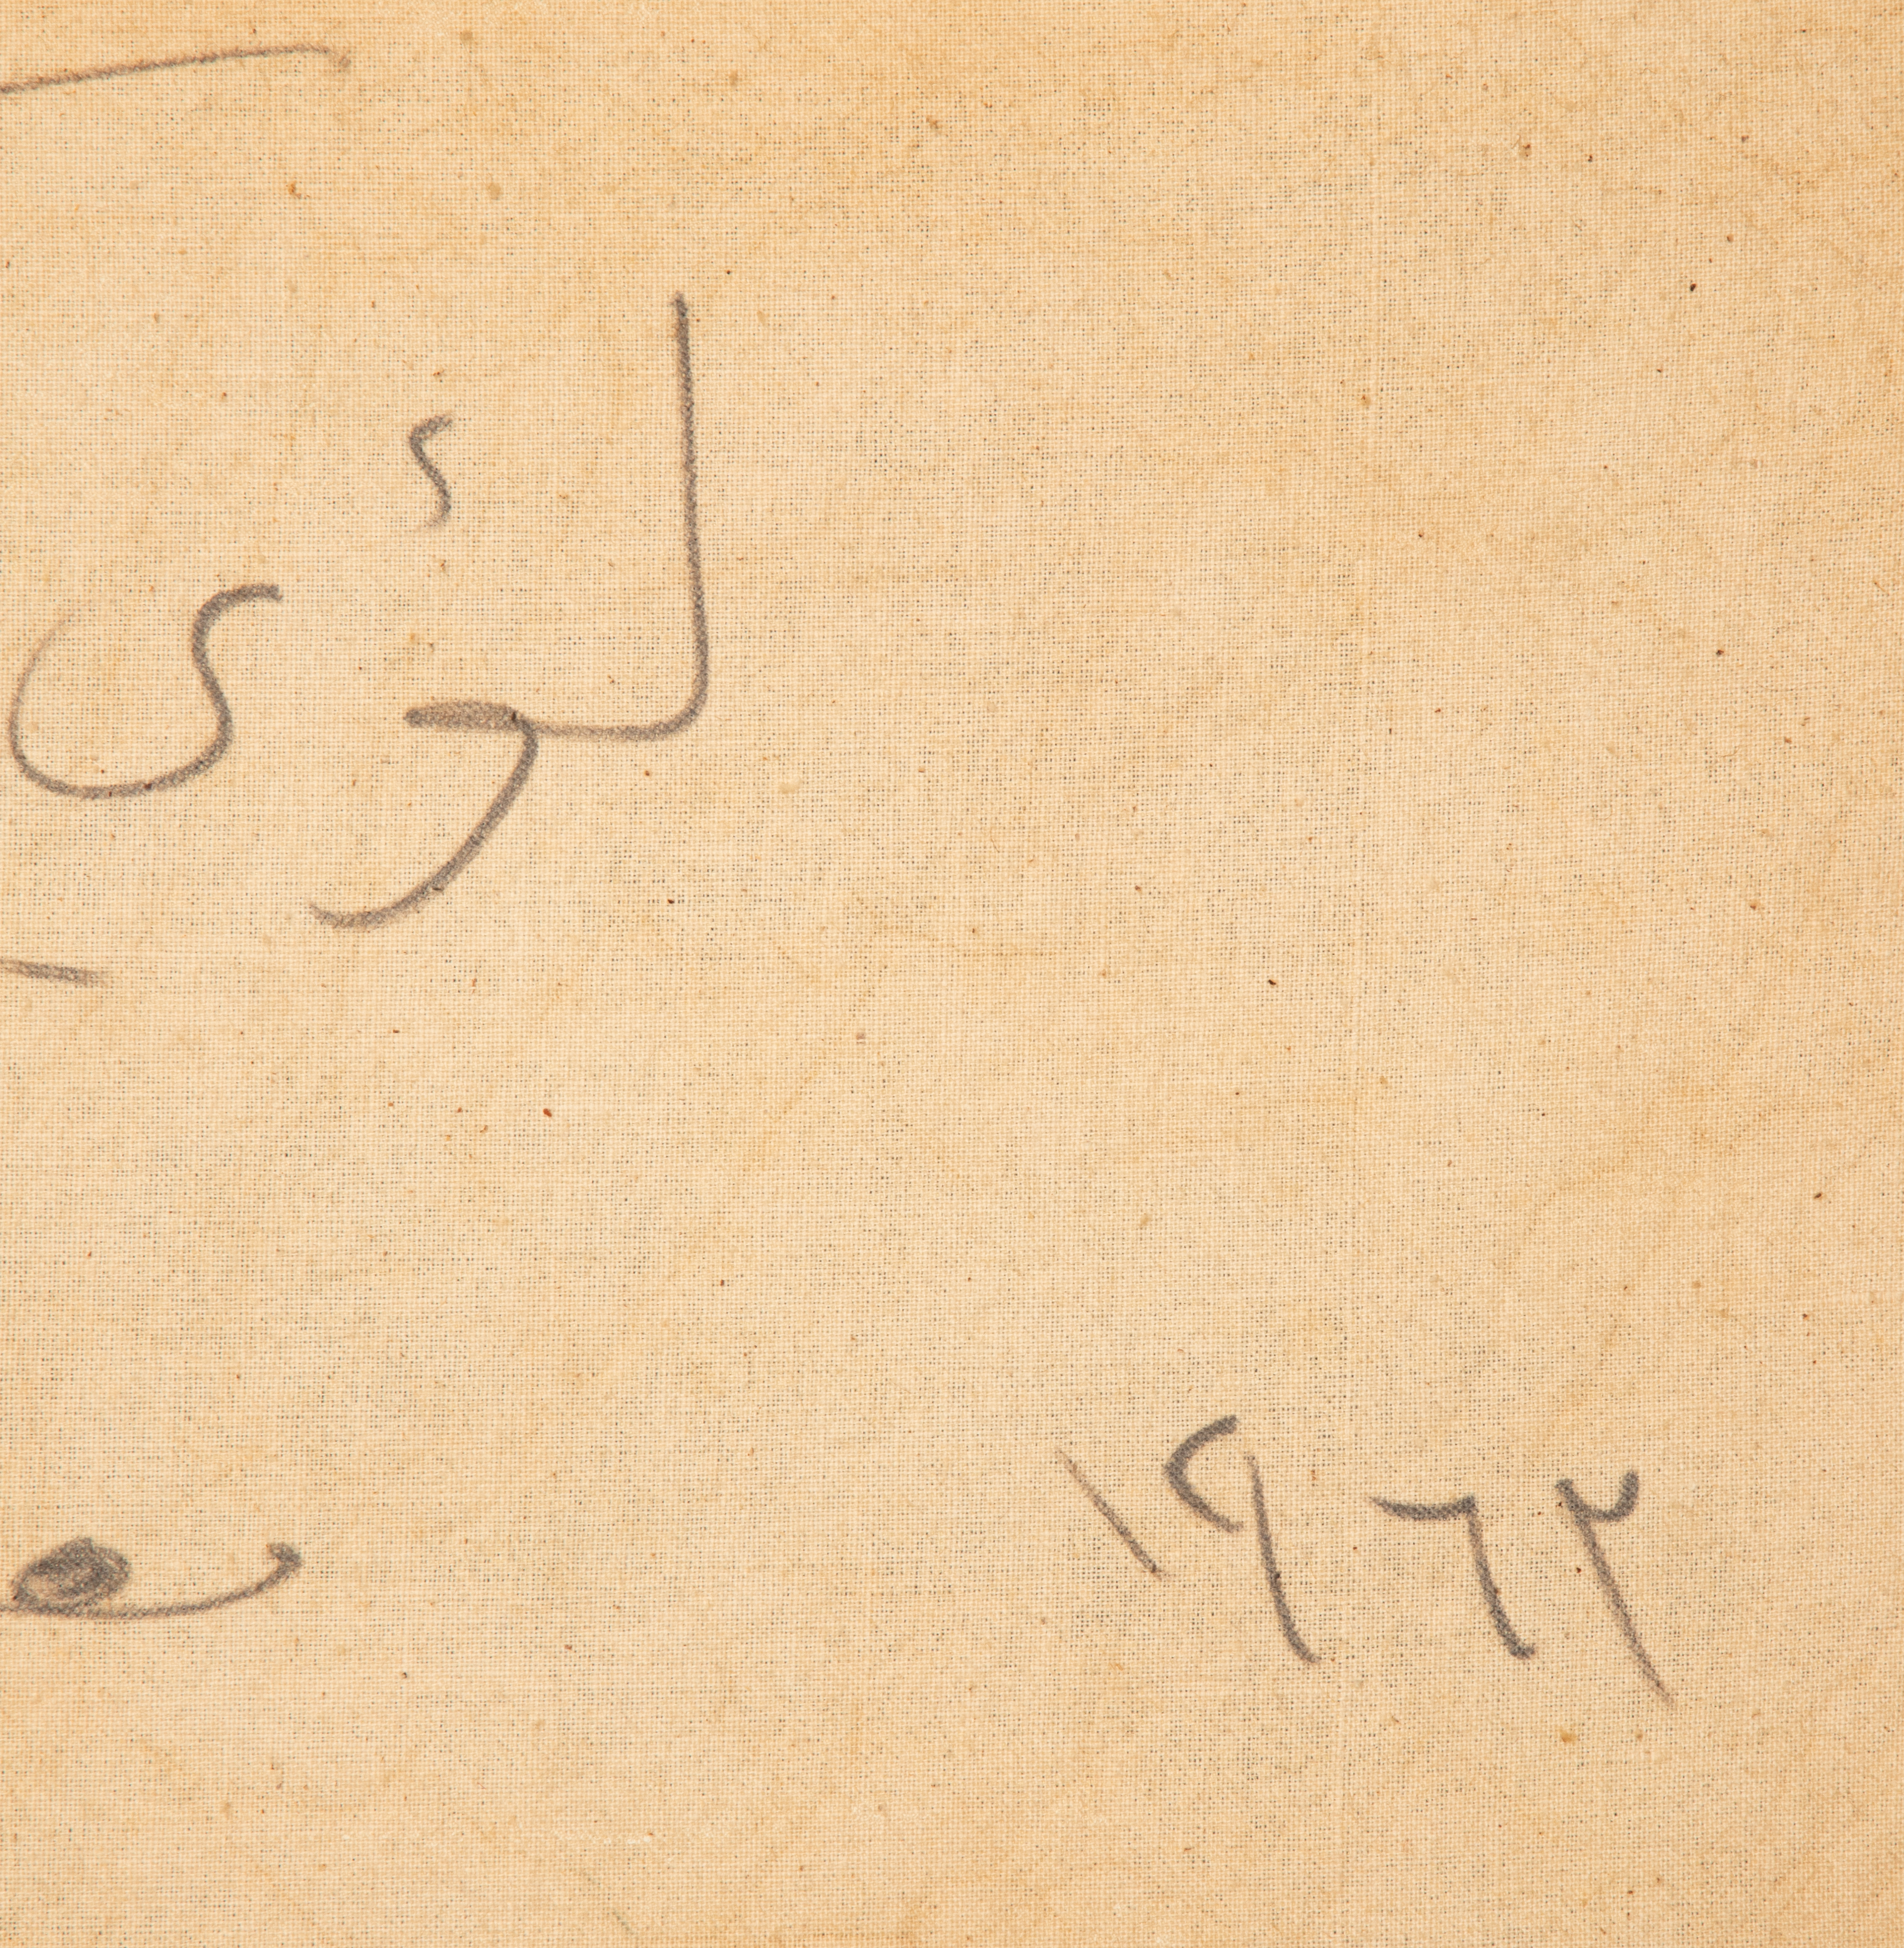 لؤي
١٩٦٢